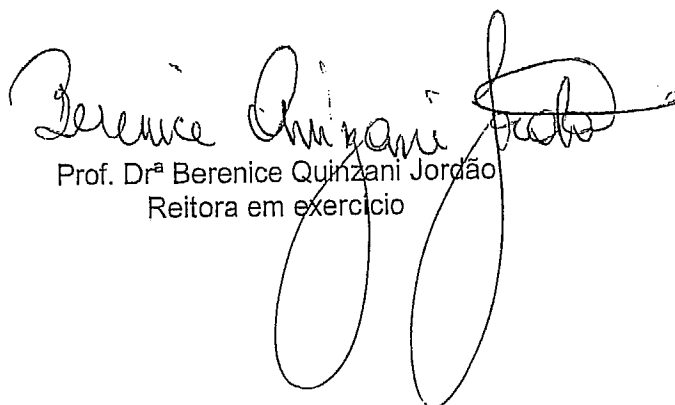 Berenice Quinzani Jordão
Prof. Drª Berenice Quinzani Jordão
Reitora em exercício